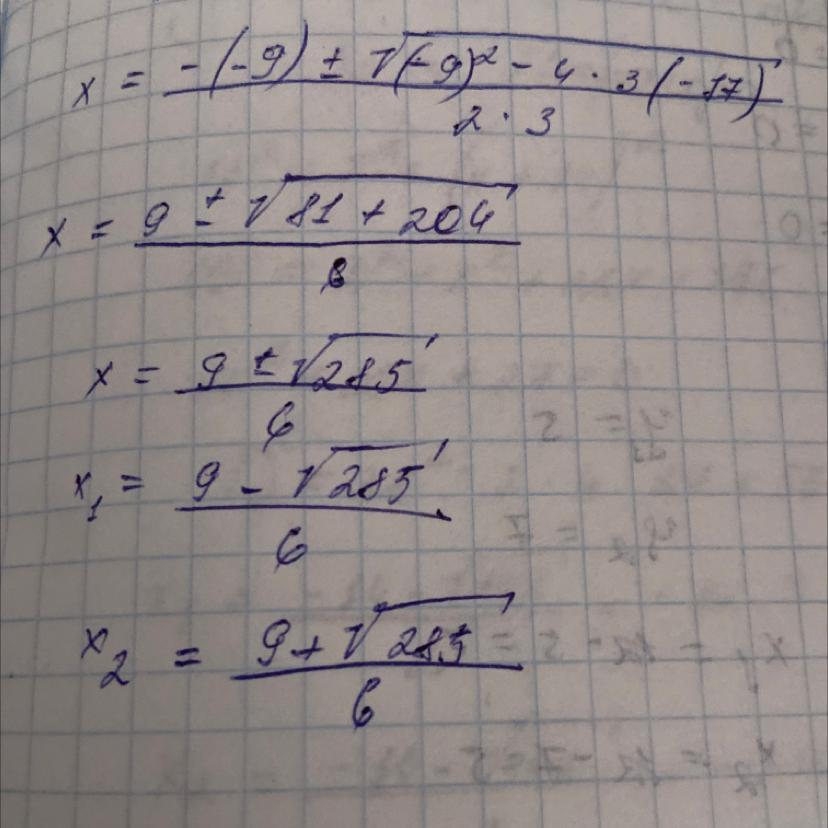 x = (-(-9) ± √((-9)² - 4 · 3(-17))) / (2 · 3)
x = (9 ± √(81 + 204)) / 6
x = (9 ± √285) / 6
x₁ = (9 - √285) / 6
x₂ = (9 + √285) / 6